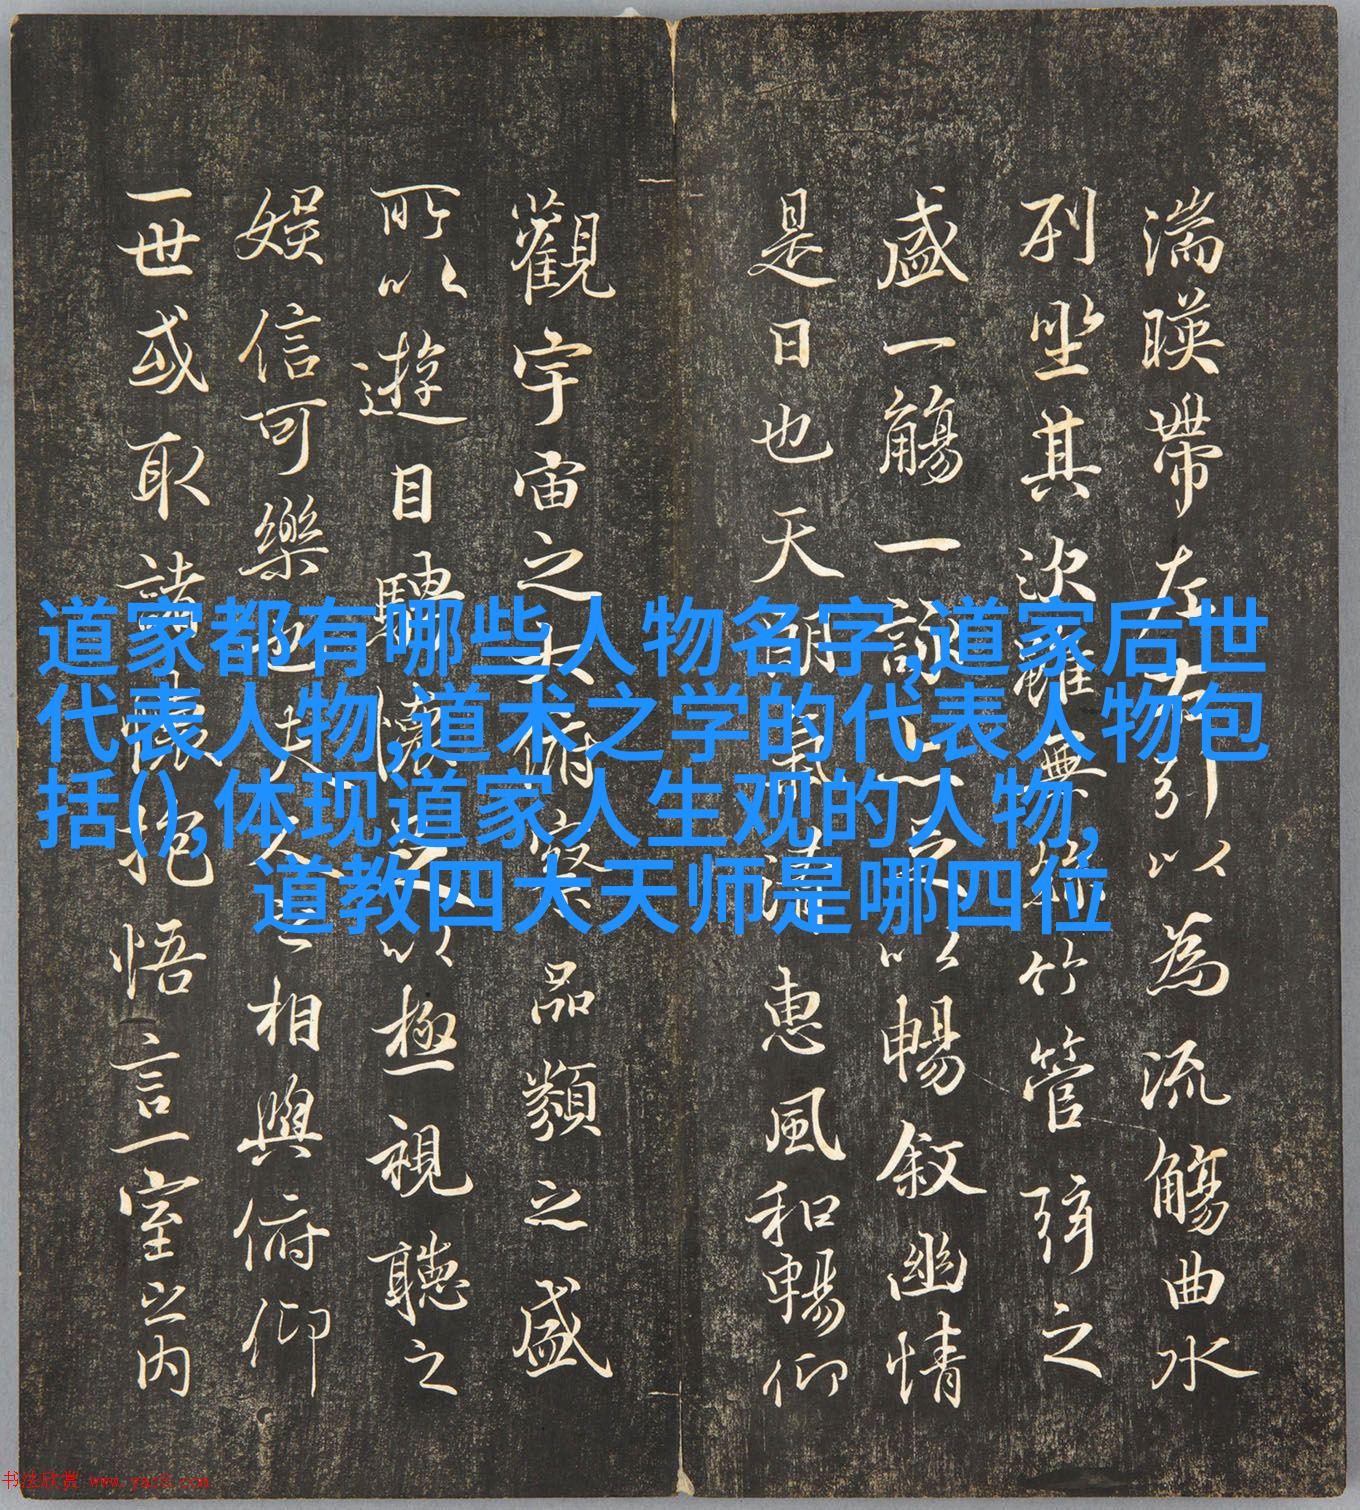 湍暎帶左右引以為流觴曲水
列坐其次雖無絲竹管弦之
盛一觴一詠亦足以暢敘幽情
是日也天朗氣清惠風和暢仰
觀宇宙之大俯察品類之盛
所以遊目騁懷足以極視聽之
娛信可樂也夫人之相與俯仰
一世或取諸懷抱悟言一室之內
道家都有哪些人物名字,道家后世
代表人物,道术之学的代表人物包
括(),体现道家人生观的人物,
道教四大天师是哪四位
书法欣赏 www.yac8.com